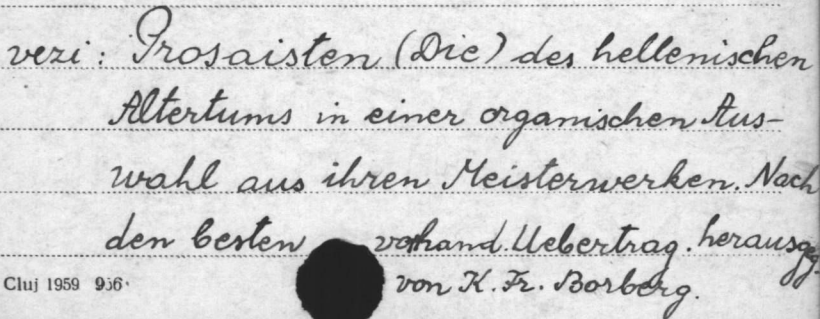 vezi: Prosaisten (Die) des hellenischen
Altertums in einer organischen Aus-
wahl aus ihren Meisterwerken. Nach
den besten vorhand. Uebertrag. herausgeg.
von K. Fr. Borberg.
Cluj 1959 956